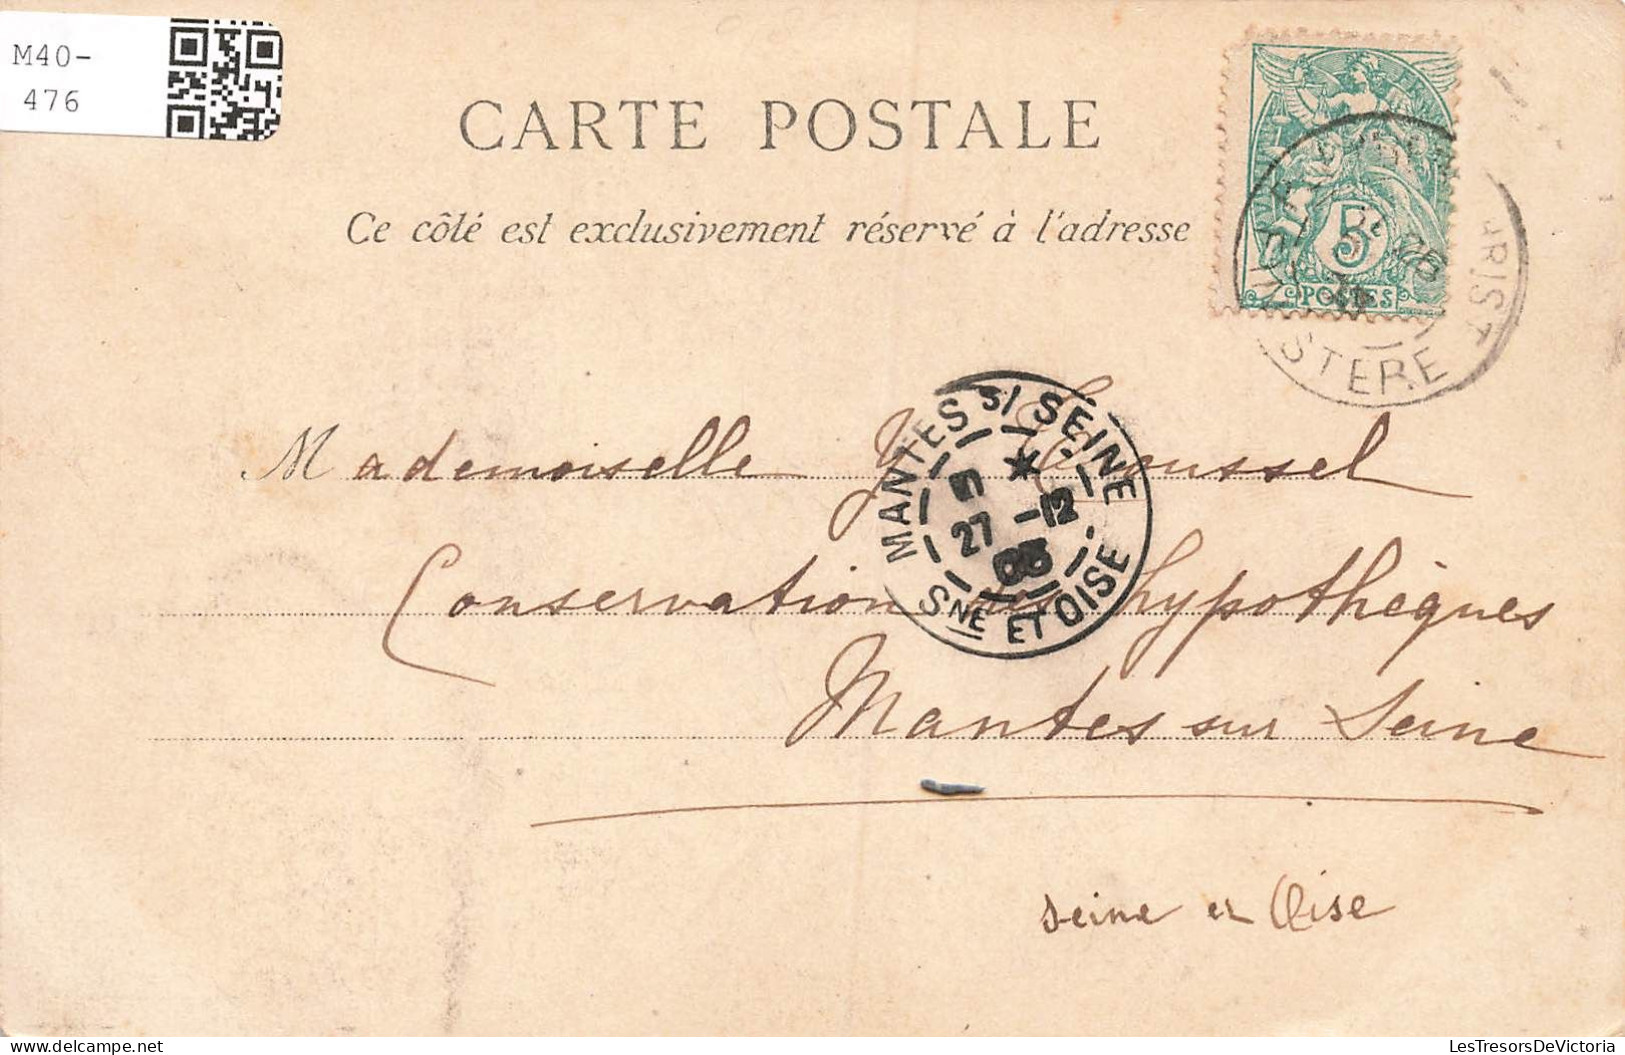 M40-
476
CARTE POSTALE
Ce côté est exclusivement réservé à l'adresse
5
POSTES
STERE
MANTES S/ SEINE
27 -12
03
SNE ET OISE
Mademoiselle Y.
Conservation hypothèques
Mantes sur Seine
Seine et Oise
LesTresorsDeVictoria